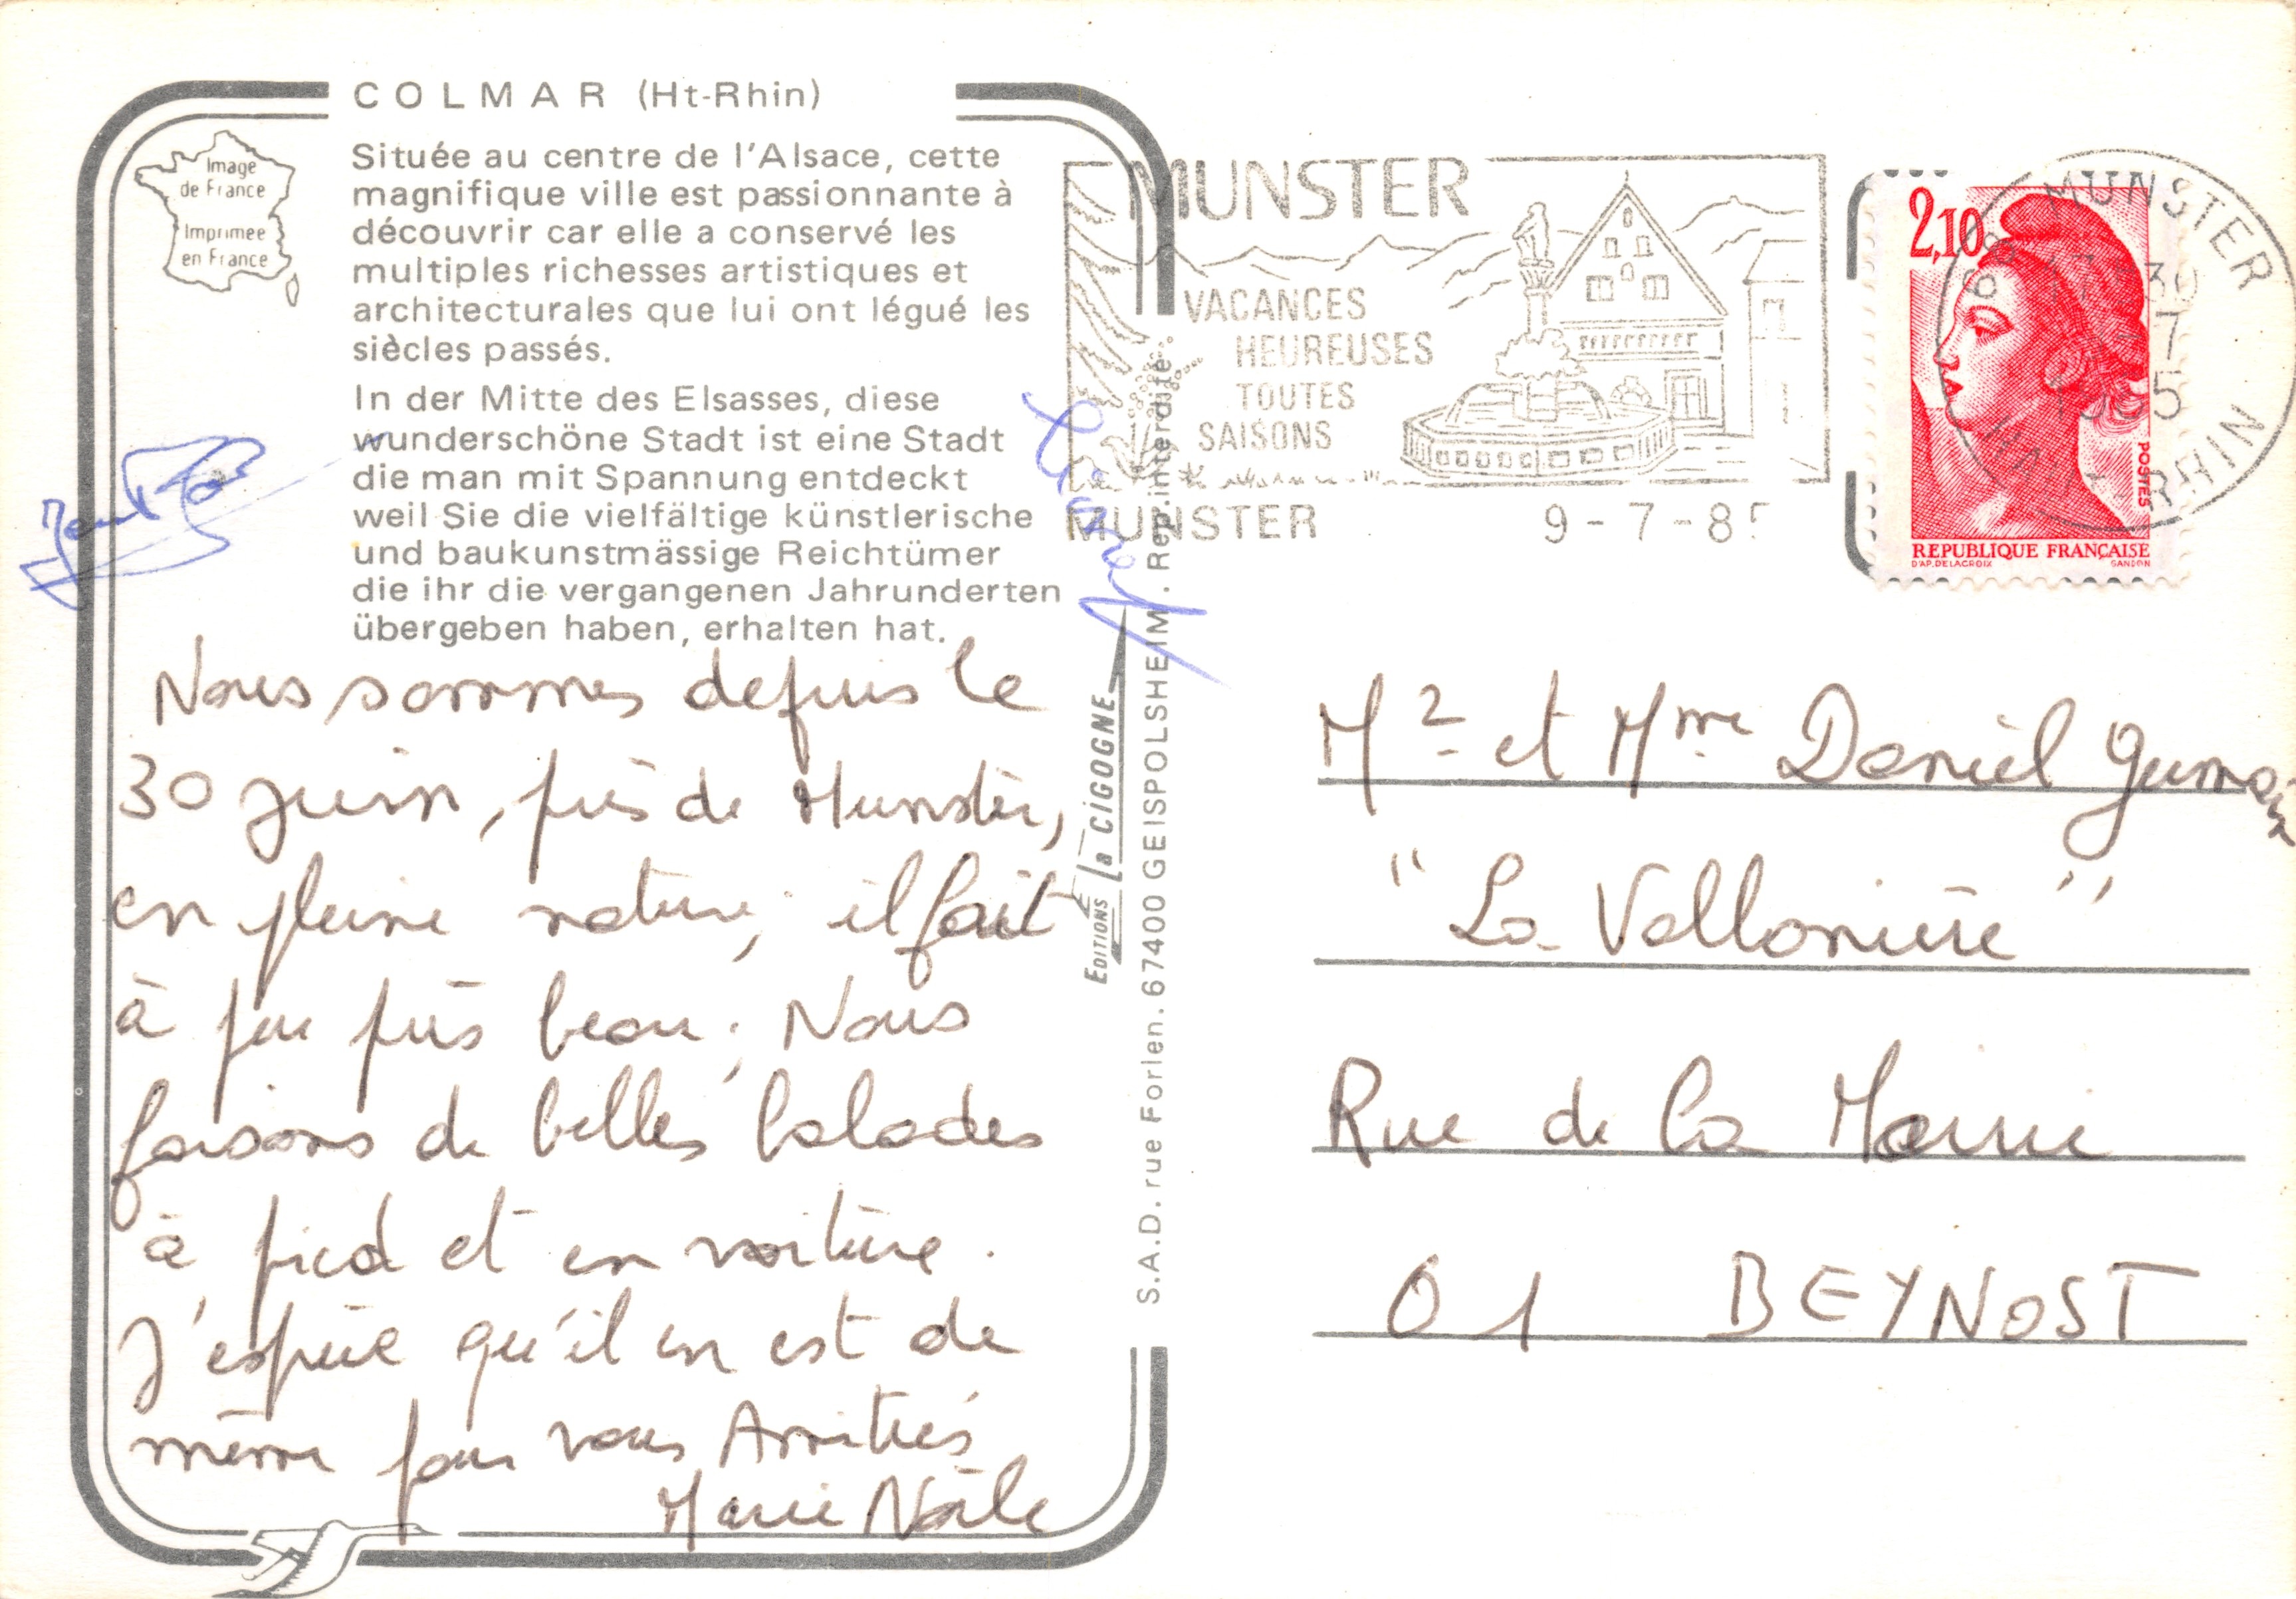 COLMAR (Ht-Rhin)
Image
de France
Imprimée
en France
Située au centre de l'Alsace, cette
magnifique ville est passionnante à
découvrir car elle a conservé les
multiples richesses artistiques et
architecturales que lui ont légué les
siècles passés.
In der Mitte des Elsasses, diese
wunderschöne Stadt ist eine Stadt
die man mit Spannung entdeckt
weil Sie die vielfältige künstlerische
und baukunstmässige Reichtümer
die ihr die vergangenen Jahrunderten
übergeben haben, erhalten hat.
Nous sommes depuis le
30 juin, près de Munster,
en pleine nature, il fait
à peu près beau; Nous
faisons de belles balades
à pied et en voiture.
J'espère qu'il en est de
même pour vous Amitiés
Marie Noële
EDITIONS La CIGOGNE
S.A.D. rue Forlen. 67400 GEISPOLSHEIM. Rep. interdite
MUNSTER
VACANCES
HEUREUSES
TOUTES
SAISONS
MUNSTER 9-7-85
2,10
POSTES
REPUBLIQUE FRANÇAISE
D'AP. DELACROIX GANDON
68 MUNSTER
RHIN
Mr et Mme Daniel
"La Vallonière"
Rue de la Mairie
01 BEYNOST